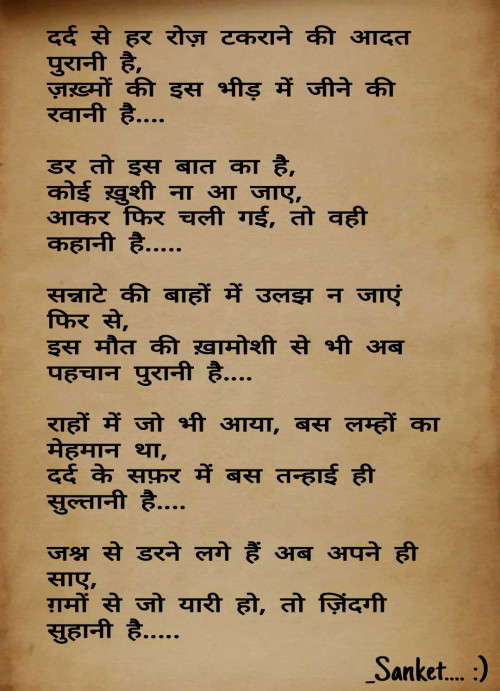 दर्द से हर रोज़ टकराने की आदत
पुरानी है,
ज़ख़्मों की इस भीड़ में जीने की
रवानी है....
डर तो इस बात का है,
कोई ख़ुशी ना आ जाए,
आकर फिर चली गई, तो वही
कहानी है.....
सन्नाटे की बाहों में उलझ न जाएं
फिर से,
इस मौत की ख़ामोशी से भी अब
पहचान पुरानी है....
राहों में जो भी आया, बस लम्हों का
मेहमान था,
दर्द के सफ़र में बस तन्हाई ही
सुल्तानी है....
जश्न से डरने लगे हैं अब अपने ही
साए,
ग़मों से जो यारी हो, तो ज़िंदगी
सुहानी है.....
_Sanket.... :)